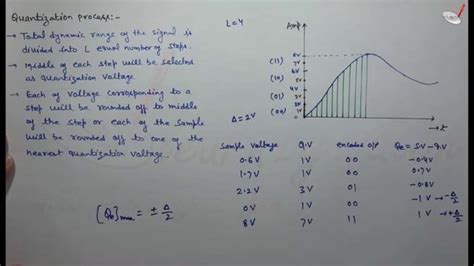 Quantization process:-
→ Total dynamic range of the signal is
divided into L equal number of steps.
→ Middle of each step will be selected
as quantization voltage.
→ Each of voltage corresponding to a
step will be rounded off to middle
of the step or each of the sample
will be rounded off to one of the
nearest quantization voltage.
[Qe]max = ± Δ/2
L=4
Δ = 2V
Amp
8V
7V
(11) 6V
5V
(10) 4V
3V
(01) 2V
1V
(00) 0
→ t
Sample voltage Q.V encoded o/p Qe = S.V - Q.V
0.6V 1V 00 -0.4V
1.7V 1V 00 0.7V
2.2V 3V 01 -0.8V
0V 1V 00 -1V → -Δ/2
8V 7V 11 1V → +Δ/2